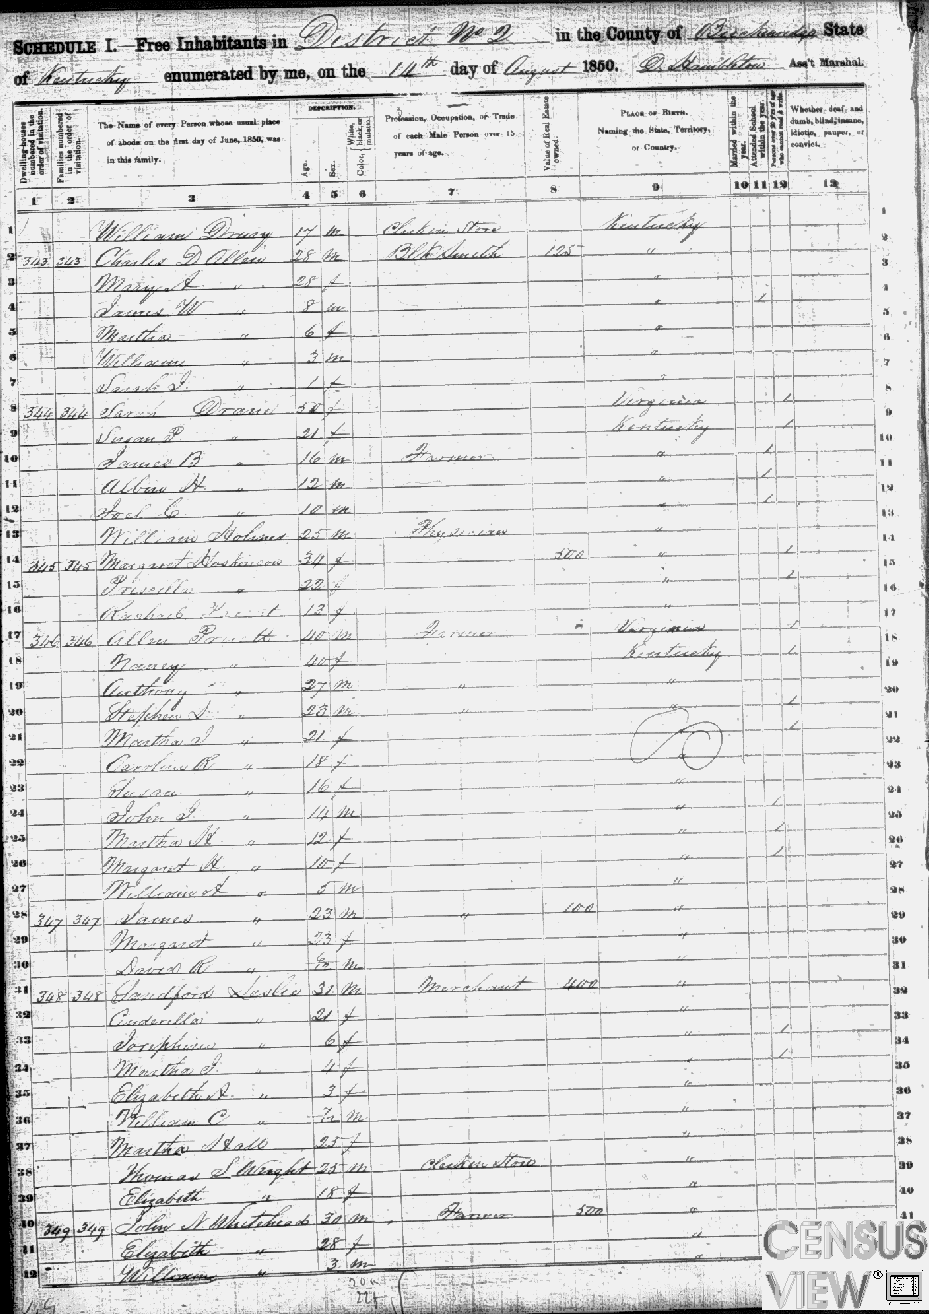 SCHEDULE I.—Free Inhabitants in District No 2 in the County of State
of Kentucky enumerated by me, on the 14th day of August 1850. D. Hamilton Ass't Marshal.
Dwelling-houses numbered in the order of visitation.
Families numbered in the order of visitation.
The Name of every Person whose usual place of abode on the first day of June, 1850, was in this family.
DESCRIPTION.
Age.
Sex.
Color, White, black, or mulatto.
Profession, Occupation, or Trade of each Male Person over 15 years of age.
Value of Real Estate owned.
PLACE OF BIRTH. Naming the State, Territory, or Country.
Married within the year.
Attended School within the year.
Persons over 20 y'rs of age who cannot read & write.
Whether deaf, and dumb, blind, insane, idiotic, pauper, or convict.
1 2 3 4 5 6 7 8 9 10 11 12 13
1 William Drury 17 m Clerk in Store Kentucky
2 343 343 Charles D Allen 28 m Blk Smith 125 "
3 Mary A " 28 f "
4 James W " 8 m " 1
5 Martha " 6 f "
6 William " 3 m "
7 Sarah J. " 1 f "
8 344 344 Sarah Drane 50 f Virginia 1
9 Susan P " 21 f Kentucky 1
10 James B " 16 m Farmer " 1
11 Albert H " 12 m " 1
12 Joel C " 10 m " 1
13 William Holmes 25 m Physician "
14 345 345 Margaret 34 f 500 " 1
15 Priscilla " 22 f " 1
16 13 f "
17 346 346 Allen Pruett 40 m Farmer Virginia 1
18 Nancy " 40 f Kentucky 1
19 Anthony " 27 m " "
20 Stephen " 23 m " " 1
21 Martha J " 21 f 1
22 Caroline R " 18 f "
23 Susan " 16 f "
24 John J. " 14 m " 1
25 Martha H " 12 f " 1
26 Margaret A. " 10 f " 1
27 William A " 5 m "
28 347 347 James " 23 m " 100 "
29 Margaret " 23 f "
30 David R " m "
31 348 348 Sandford Leslie 31 m Merchant 400 "
32 Cinderella " 21 f "
33 Josephine " 6 f " 1
34 Martha J. " 4 f " 1
35 Elizabeth A. " 3 f "
36 William C " m "
37 Martha Hall 25 f "
38 Thomas S Wright 25 m Clerk in Store
39 Elizabeth " 18 f "
40 349 349 John N Whitehead 30 m Farmer 500 "
41 Elizabeth " 28 f "
42 William " 3 m "
CENSUS
VIEW®